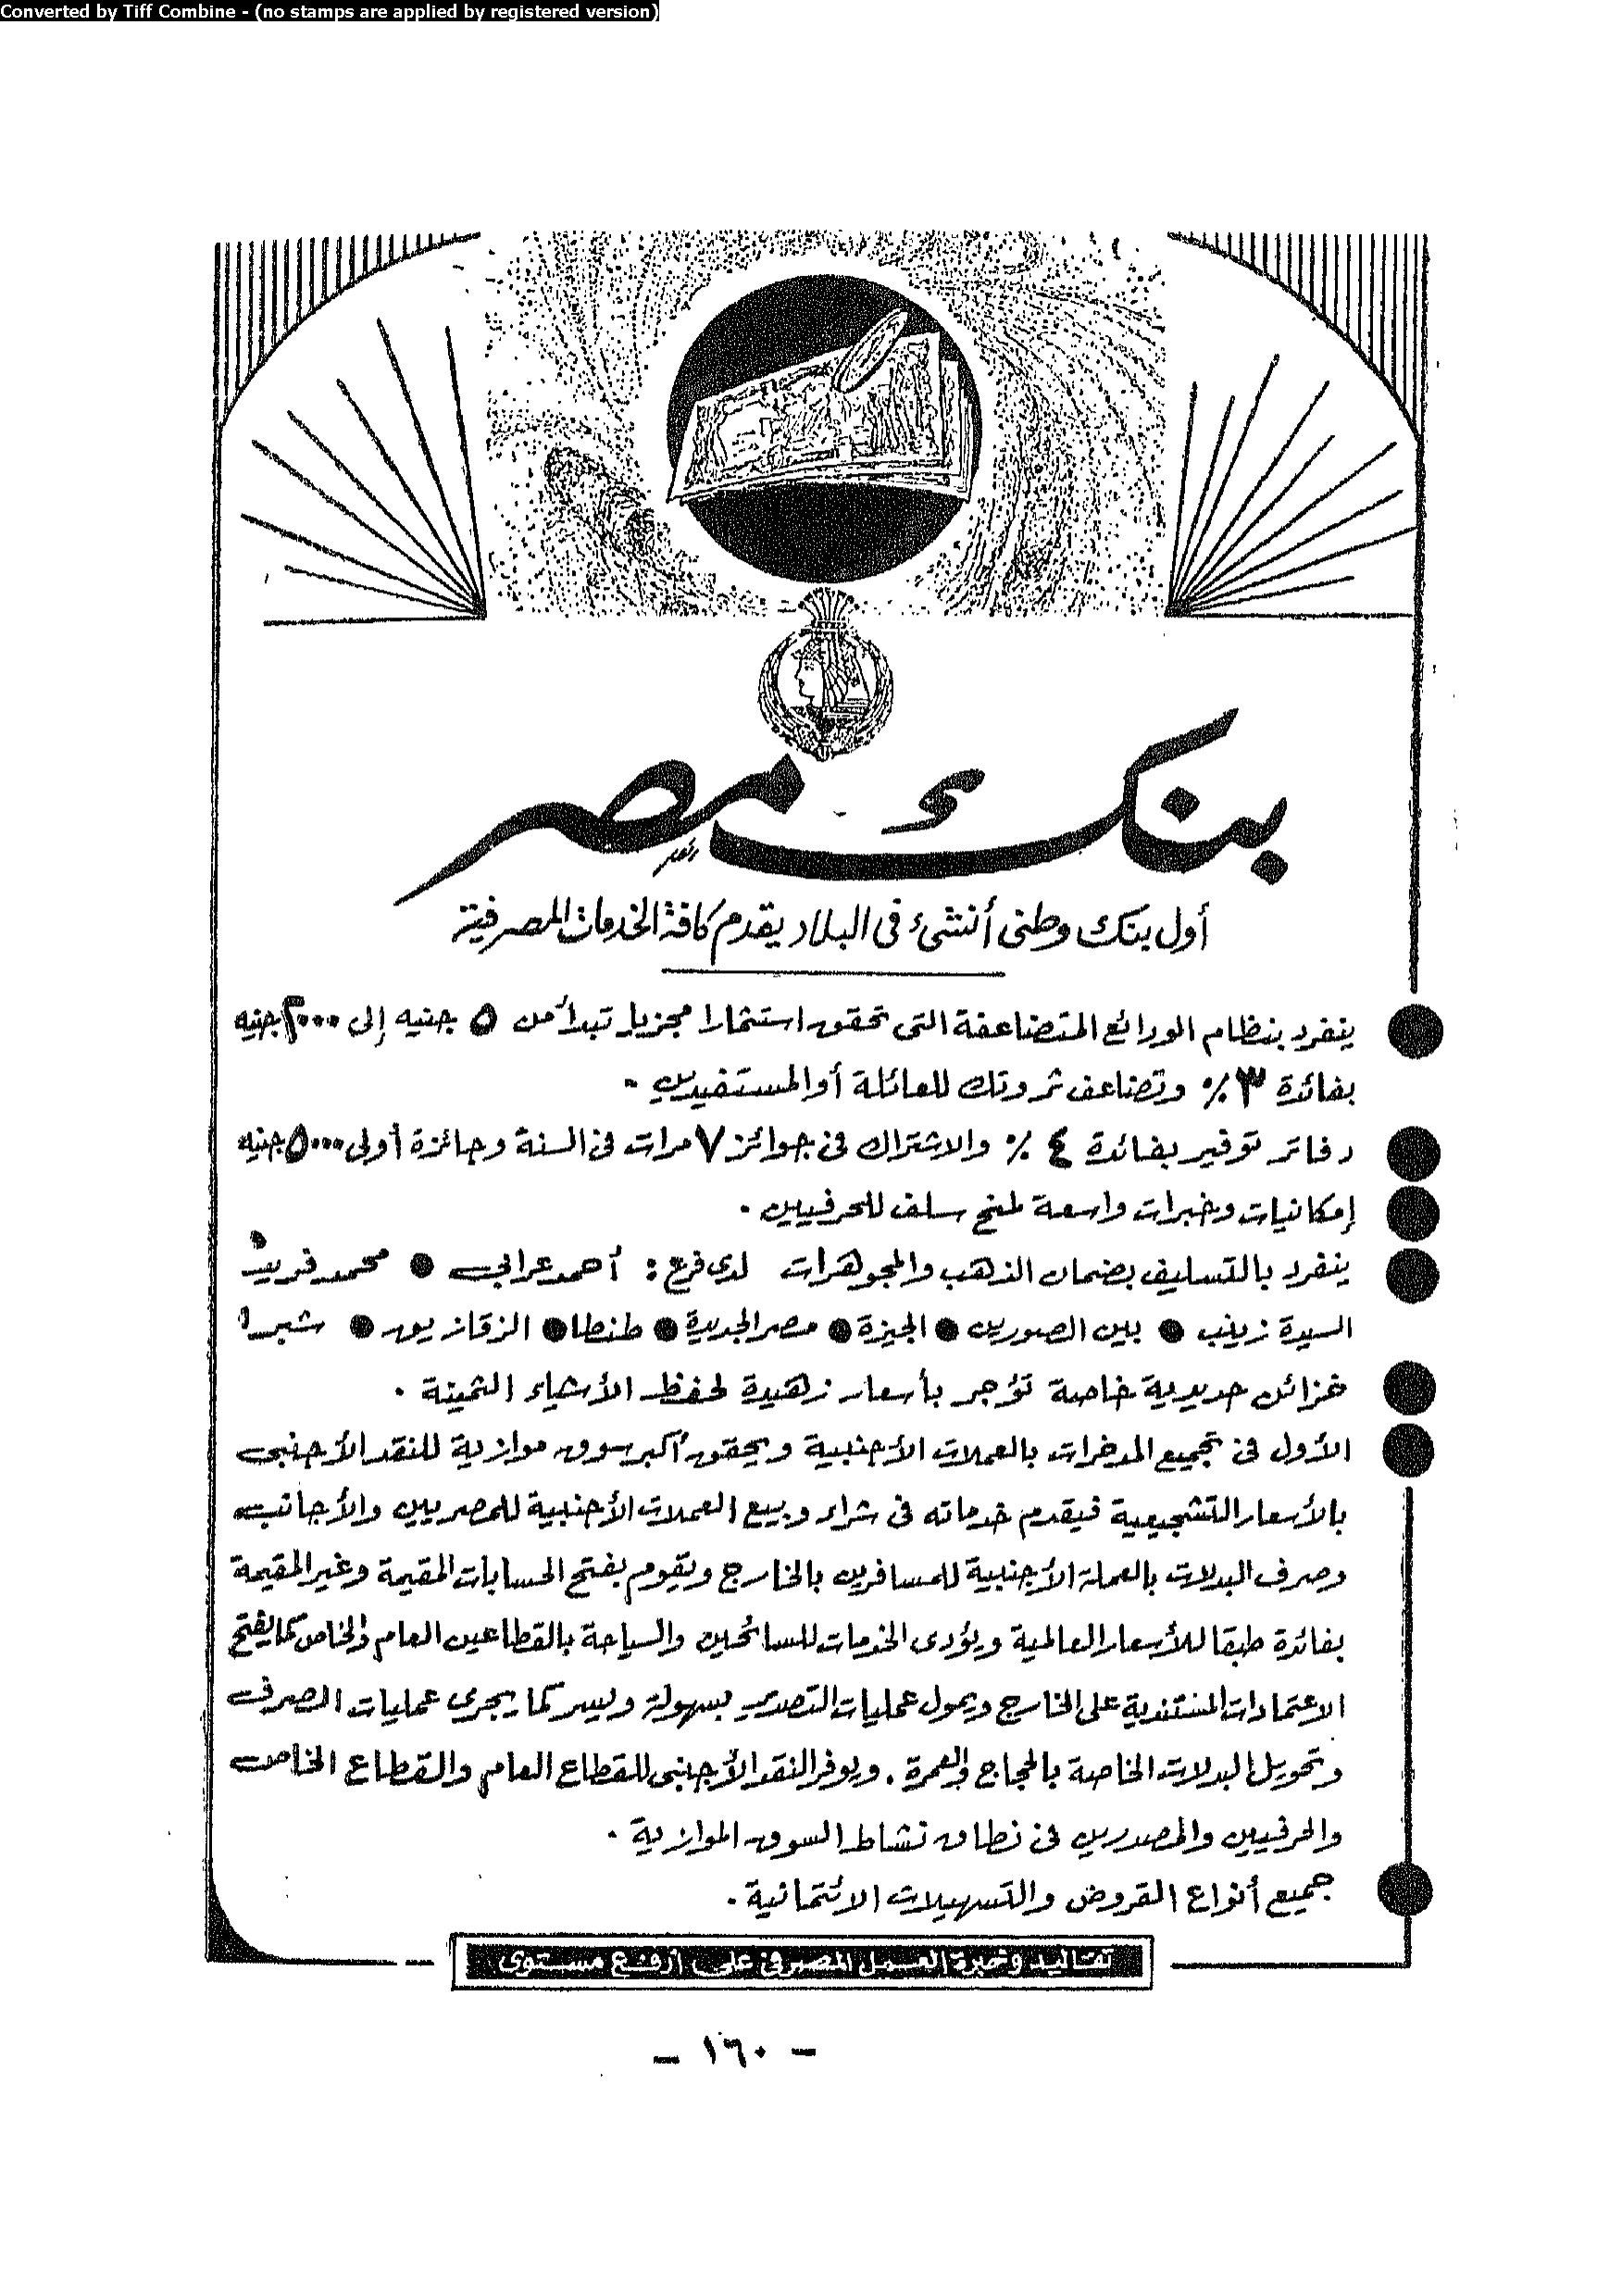 Converted by Tiff Combine - (no stamps are applied by registered version)
بنك مصر
أول بنك وطنى أنشئ فى البلاد يقدم كافة الخدمات المصرفية
ينفرد بنظام الودائع المتضاعفة التى تحقق استثمارا مجزيا تبدأ من ٥ جنيه إلى ٢٠٠٠ جنيه
بفائدة ٣ ٪ وتضاعف ثروتك للعائلة أو المستفيدين .
دفاتر توفير بفائدة ٤ ٪ والاشتراك فى جوائز ٧ مرات فى السنة وجائزة أولى ٥٠٠٠ جنيه
إمكانيات وخبرات واسعة لمنح سلف للحرفيين .
ينفرد بالتسليف بضمان الذهب والمجوهرات لدى فرع : أحمد عرابى ● محمد فريد
السيدة زينب ● بين الصورين ● الجيزة ● مصر الجديدة ● طنطا ● الزقازيق ● شبرا
خزائن حديدية خاصة تؤجر بأسعار زهيدة لحفظ الأشياء الثمينة .
الأول فى تجميع المدخرات بالعملات الأجنبية ويحقق أكبر سوق موازية للنقد الأجنبى
بالأسعار التشجيعية فيقدم خدماته فى شراء وبيع العملات الأجنبية للمصريين والأجانب
وصرف البدلات بالعملة الأجنبية للمسافرين بالخارج ويقوم بفتح الحسابات المقيمة وغير المقيمة
بفائدة طبقا للأسعار العالمية ويؤدى الخدمات للسائحين والسياحة بالقطاعين العام والخاص كما يفتح
الاعتمادات المستندية على الخارج ويمول عمليات التصدير بسهولة ويسر كما يجرى عمليات الصرف
وتحويل البدلات الخاصة بالحجاج والعمرة . ويوفر النقد الأجنبى للقطاع العام والقطاع الخاص
والحرفيين والمصدرين فى نطاق نشاط السوق الموازية .
جميع أنواع القروض والتسهيلات الائتمانية .
تقاليد وخبرة العمل المصرفى على أرفع مستوى
- ١٦٠ -